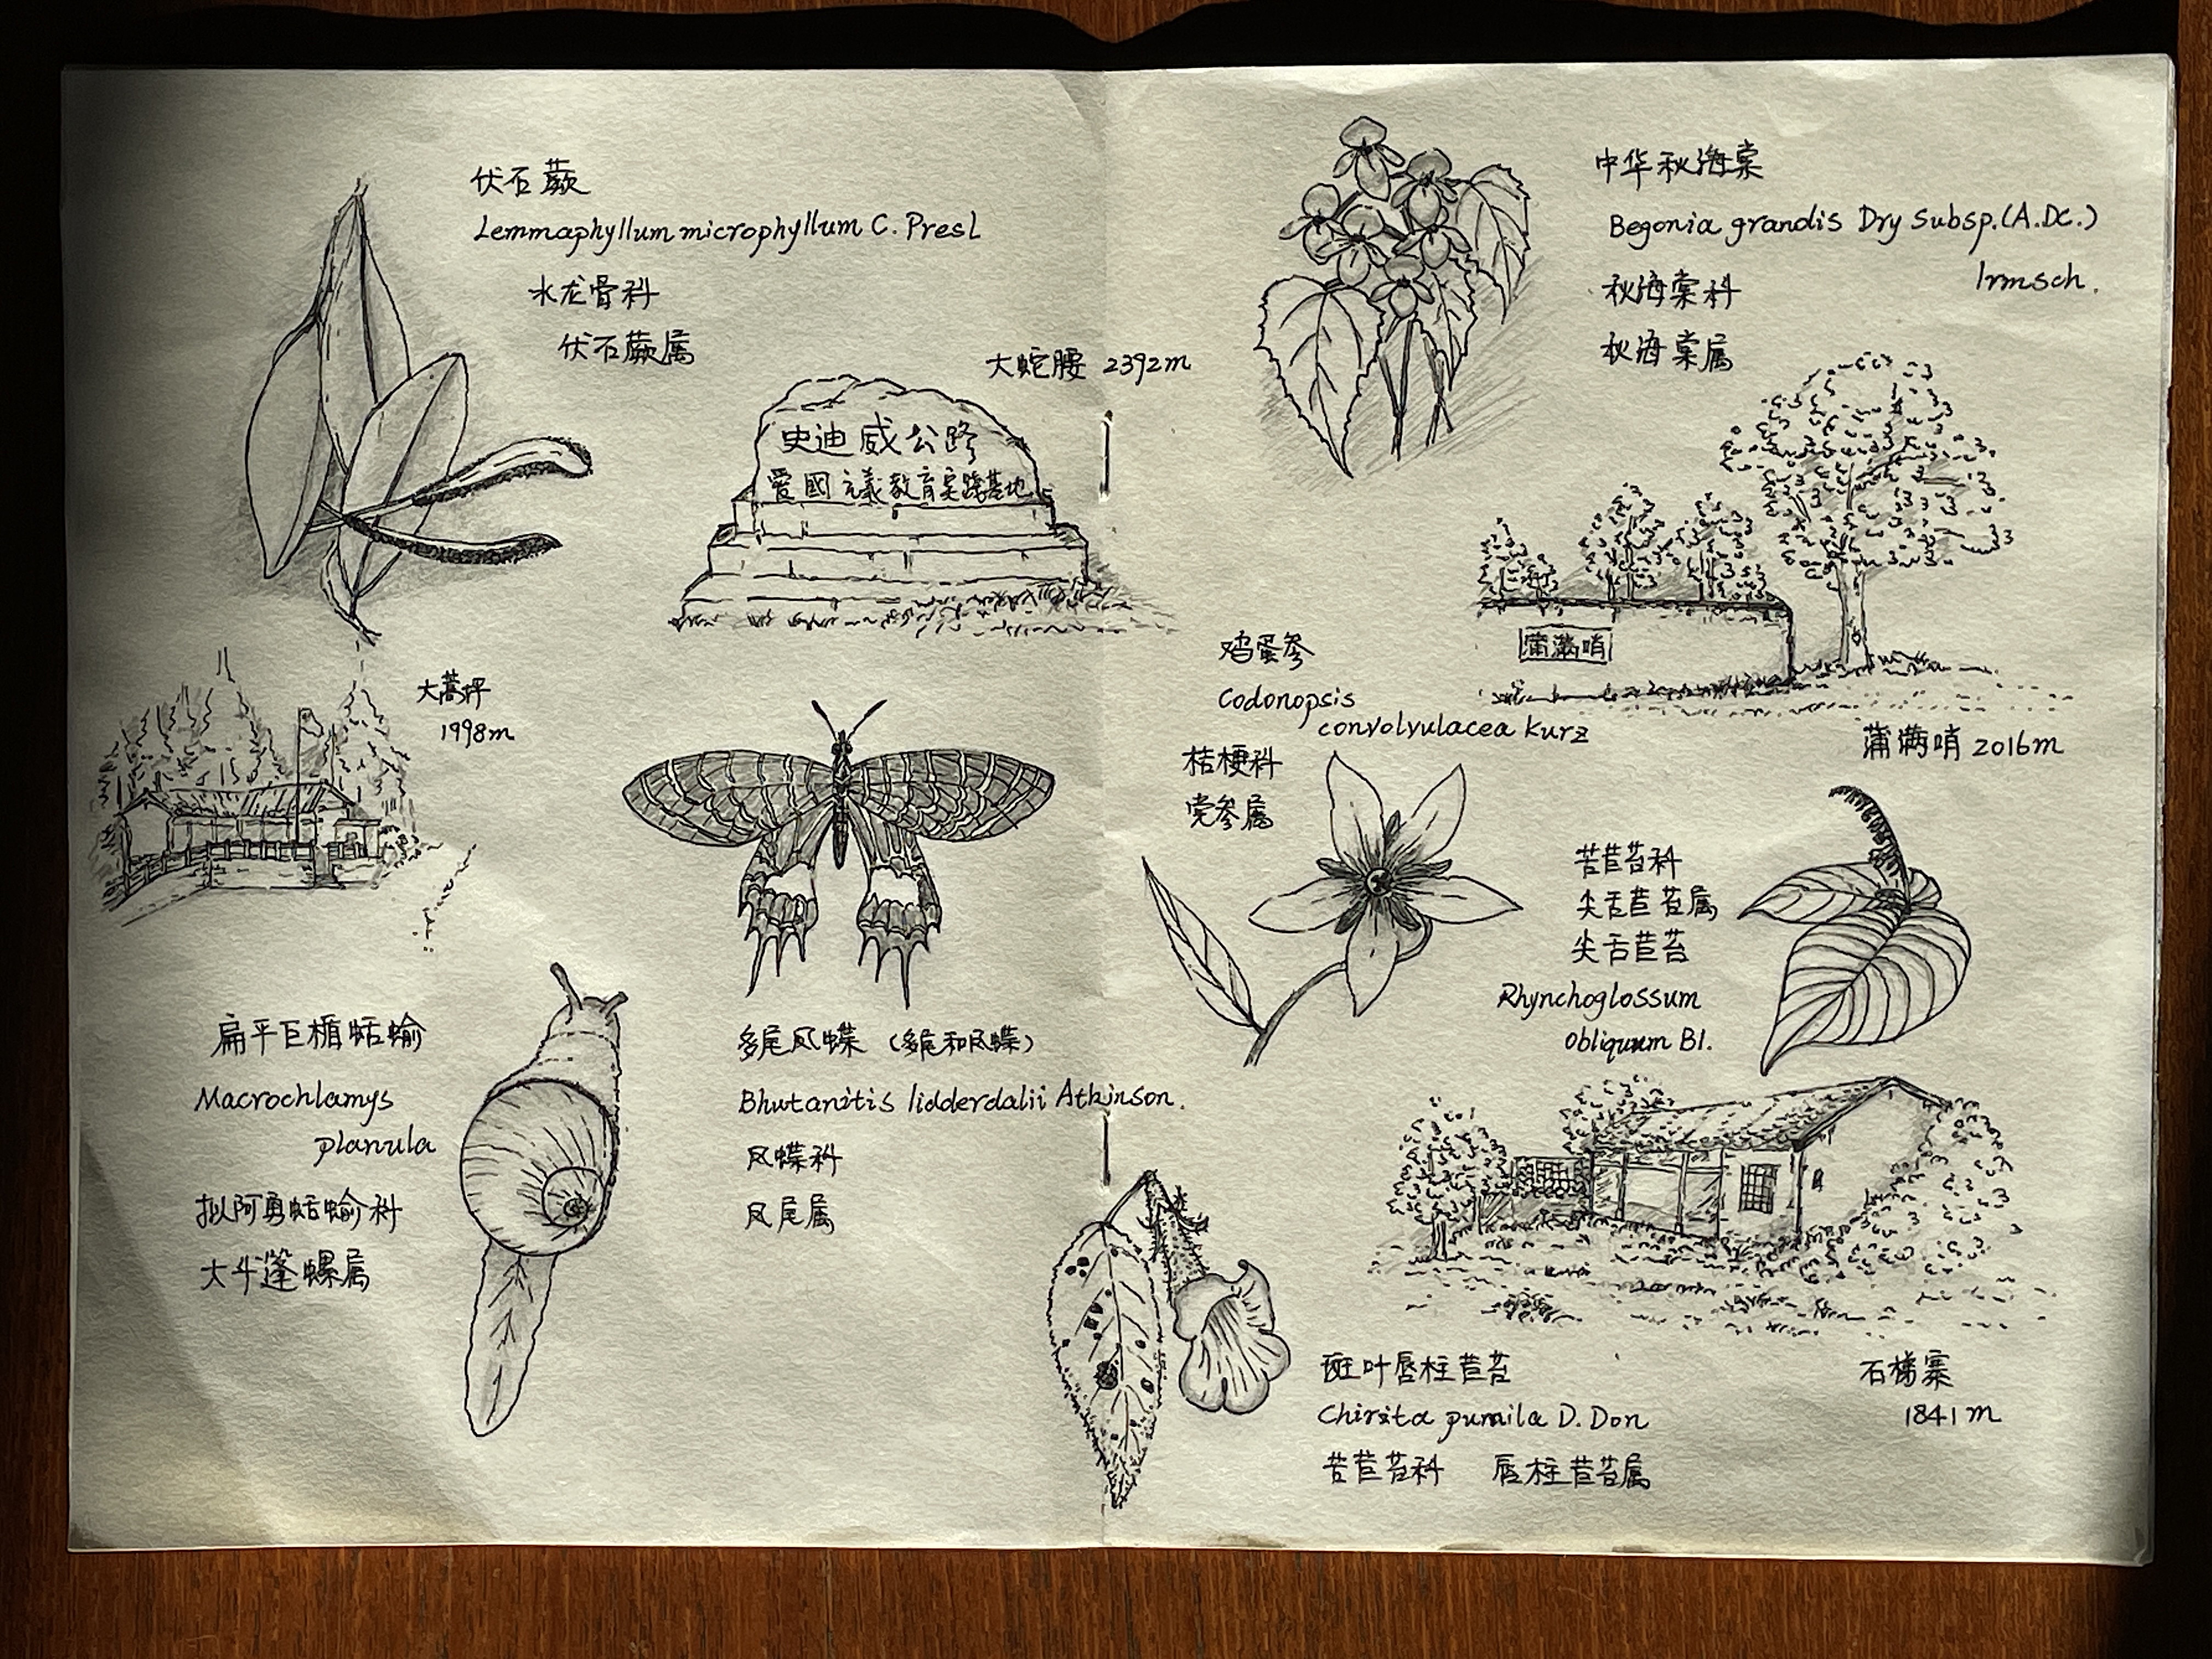 伏石蕨
Lemmaphyllum microphyllum C. Presl
水龙骨科
伏石蕨属
大蛇腰 2392m
史迪威公路
爱國主義教育实践基地
大蒿坪
1998m
扁平巨楯蛞蝓
Macrochlamys
planula
拟阿勇蛞蝓科
大斗蓬螺属
多尾凤蝶（多尾和凤蝶）
Bhutanitis lidderdalii Atkinson.
凤蝶科
凤尾属
中华秋海棠
Begonia grandis Dry Subsp.(A.DC.)
Irmsch.
秋海棠科
秋海棠属
蒲满哨
蒲满哨 2016m
鸡蛋参
Codonopsis
convolvulacea Kurz
桔梗科
党参属
苦苣苔科
尖舌苣苔属
尖舌苣苔
Rhynchoglossum
obliquum Bl.
斑叶唇柱苣苔
Chirita pumila D.Don
苦苣苔科 唇柱苣苔属
石梯寨
1841m